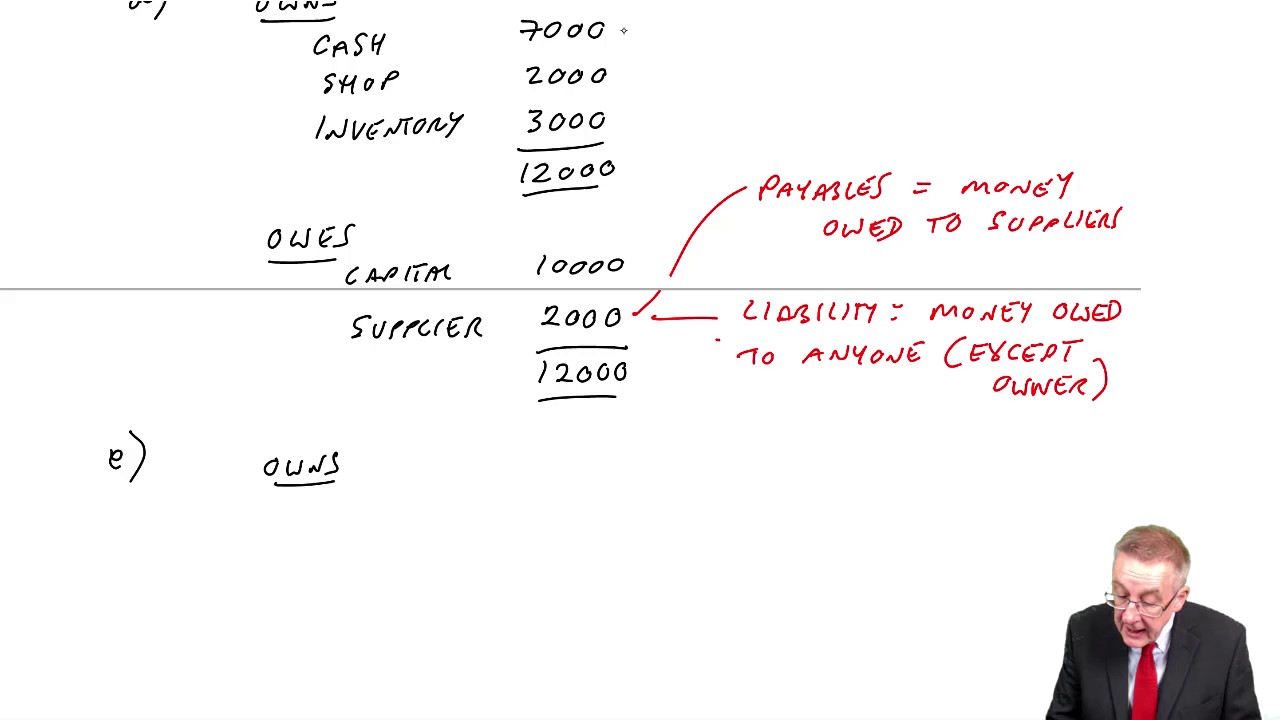 OWNS
CASH 7000
SHOP 2000
INVENTORY 3000
12000
OWES
CAPITAL 10000
SUPPLIER 2000
12000
PAYABLES = MONEY
OWED TO SUPPLIERS
LIABILITY = MONEY OWED
TO ANYONE (EXCEPT
OWNER)
e) OWNS